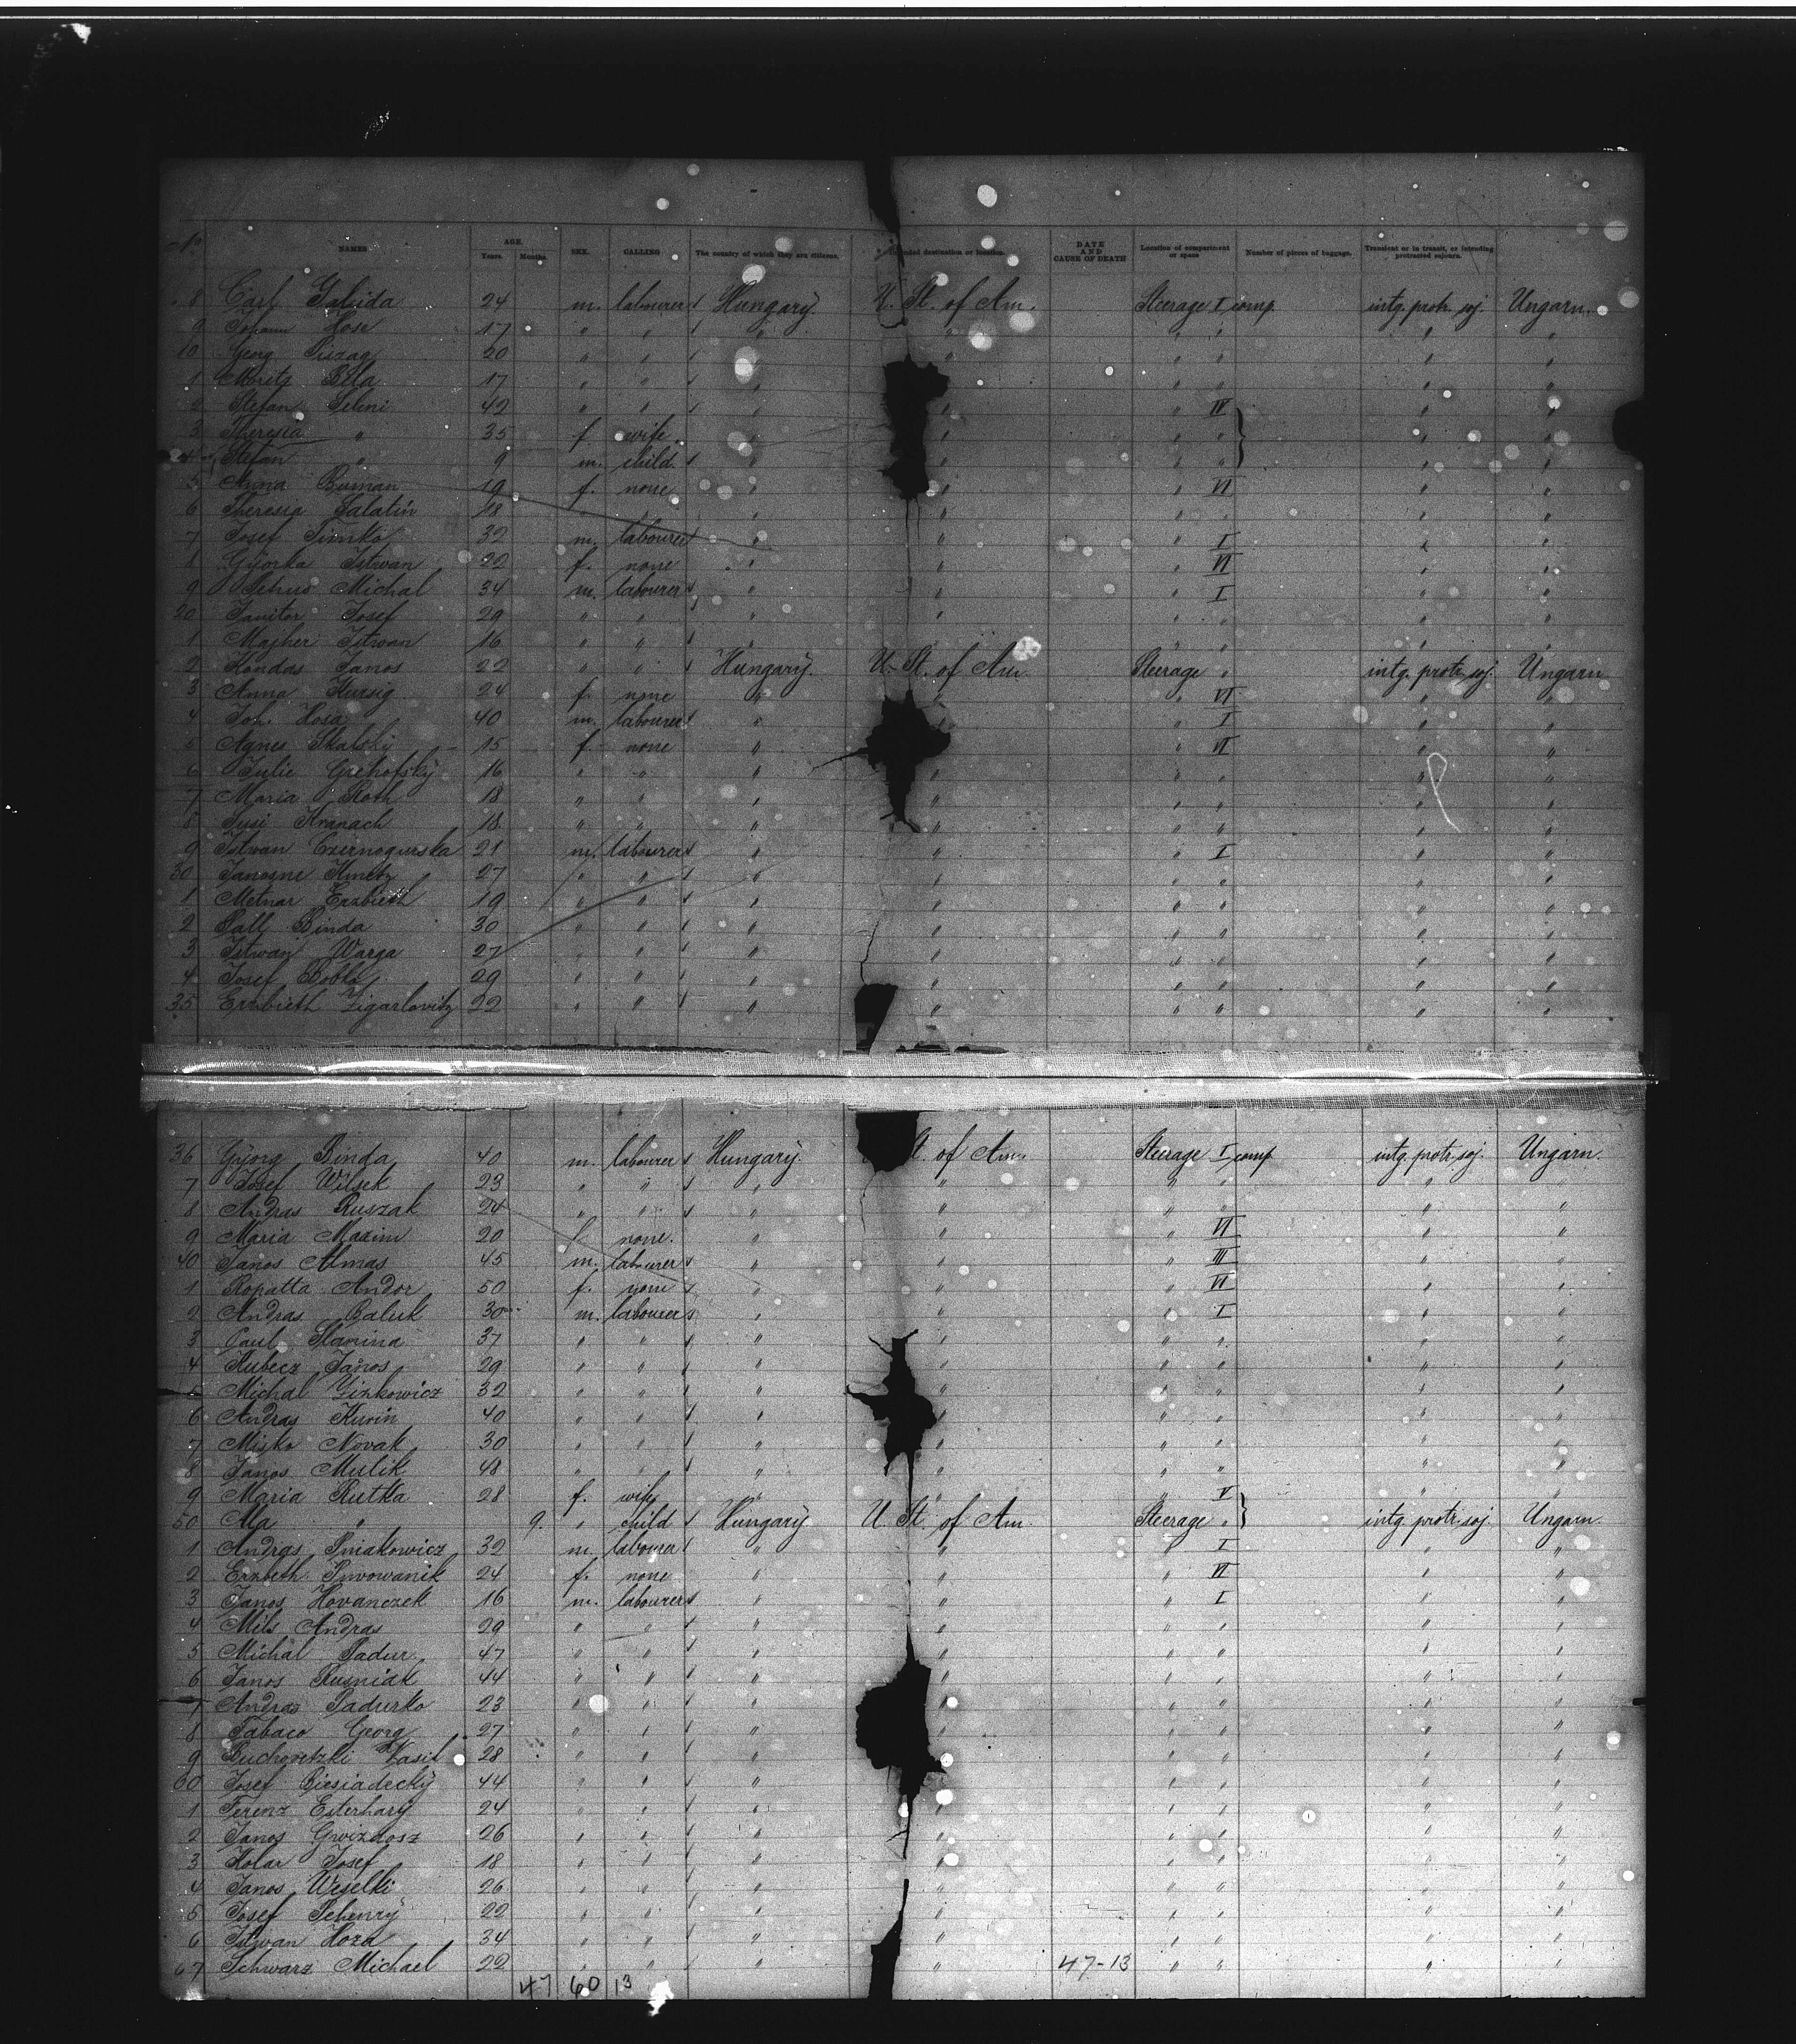 No. NAMES AGE. Years. Months. SEX. CALLING The country of which they are citizens. Intended destination or location. DATE AND CAUSE OF DEATH Location of compartment or space Number of pieces of baggage. Transient or in transit, or intending protracted sojourn.
8 Carl Galida 24 m. labourer Hungary. U. St. of Am. Steerage I comp. intg. protr. soj. Ungarn.
9 Johann Hose 17 " " " " " " " "
10 Georg 20 " " " " " " " "
1 Moritz Bela 17 " " " " " " " "
2 Stefan 42 " " " " " IV " "
3 Theresia " 35 f. wife " " " " " "
4 Stefan " 9 m. child " " " " " "
5 Anna Buman 19 f. none " " " VI " "
6 Theresia Salatin 18 " " " " " " " "
7 Josef Timko 32 m. labourer " " " I " "
8 Györka Istwan 22 f. none " " " VI " "
9 Michal 34 m. labourer " " " I " "
20 Janitor Josef 29 " " " " " " " "
1 Majher Istwan 16 " " " " " " " "
2 Kondas Janos 22 " " Hungary. U. St. of Am. Steerage " intg. protr. soj. Ungarn
3 Anna Hersig 24 f. none " " " VI " "
4 Joh. Hosa 40 m. labourer " " " I " "
5 Agnes Skalsky 15 f. none " " " VI " "
6 Julie Grehofsky 16 " " " " " " " "
7 Maria Roth 18 " " " " " " " "
8 Susi Hranach 18. " " " " " " " "
9 Istwan Czernogurska 21 m. labourer " " " I " "
30 Janosne Kmetz 27 " " " " " " " "
1 Metnar Erzbieth 19 " " " " " " " "
2 Pall Binda 30 " " " " " " " "
3 Istwan Warga 27 " " " " " " " "
4 Josef Bobko 29 " " " " " " " "
35 Erzbieth Zigarlovitz 22 " " " " " " " "
36 Györg Binda 40 m. labourer Hungary. St. of Am. Steerage I comp intg. protr. soj. Ungarn.
7 Josef Wilsek 23 " " " " " " " "
8 Andras Ruszak 24 " " " " " " " "
9 Maria Maxim 20 f. none. " " " VI " "
40 Janos Almas 45 m. labourer " " " III " "
1 Ropatta Andor 50 f. none " " " VI " "
2 Andras Baluk 30 m. labourer " " " I " "
3 Paul Slanina 37 " " " " " " " "
4 Kubecz Janos 29 " " " " " " " "
5 Michal Zinkowicz 32 " " " " " " " "
6 Andras Kurin 40 " " " " " " " "
7 Misko Novak 30 " " " " " " " "
8 Janos Mulik 48 " " " " " " " "
9 Maria Rutka 28 f. wife " " " V " "
50 Ma " 9. " child Hungary U. St. of Am. Steerage " intg. protr. soj. Ungarn.
1 Andras Smiakowicz 32 m. labourer " " " I " "
2 Erzbeth 24 f. none " " " VI " "
3 Janos Hovanczek 16 m. labourer " " " I " "
4 Mils Andras 29 " " " " " " " "
5 Michal Padur 47 " " " " " " " "
6 Janos Rusniak 44 " " " " " " " "
7 Andras Padurko 23 " " " " " " " "
8 Tabaco Georg 27 " " " " " " " "
9 Vasil 28 " " " " " " " "
60 Josef Biesiadecky 44 " " " " " " " "
1 Ferenz Esterhary 24 " " " " " " " "
2 Janos Gwizdosz 26 " " " " " " " "
3 Kolar Josef 18 " " " " " " " "
4 Janos Weselki 26 " " " " " " " "
5 Josef Schenry 22 " " " " " " " "
6 Istwan Hoza 34 " " " " " " " "
67 Schwarz Michael 22 " " " " 47-13 " " " "
47 60 13